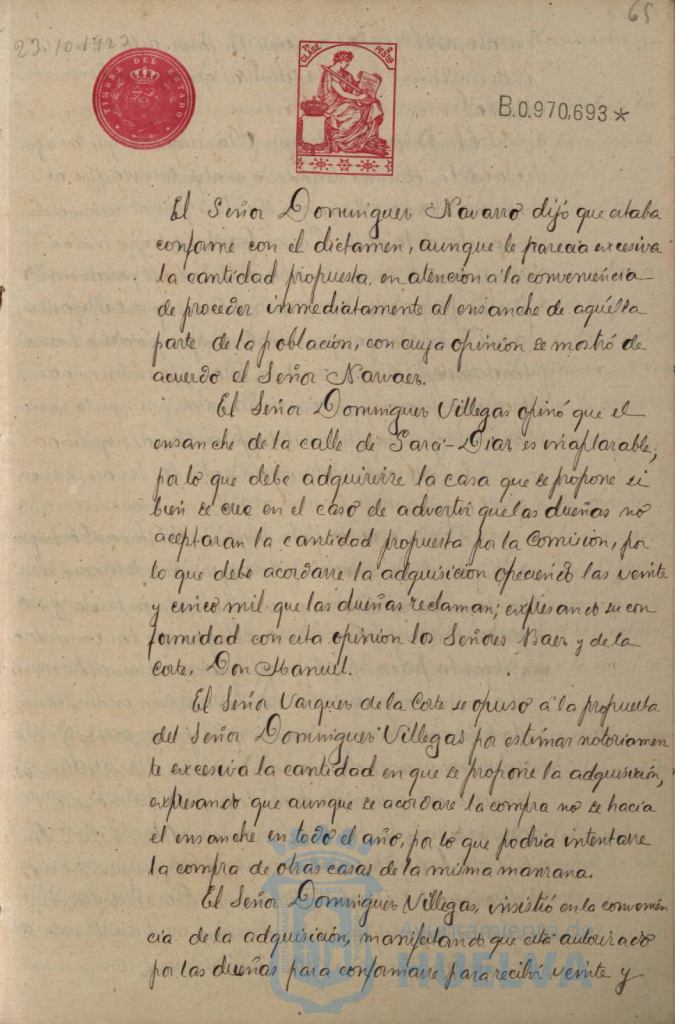 65
23.10.1923
TIMBRE DEL ESTADO
2ª CLASE 2 PESTAS
B.0.970,693*
El Señor Dominguez Navarro dijó que estaba
conforme con el dictamen, aunque le parecia excesiva
la cantidad propuesta, en atencion á la conveniencia
de proceder inmediatamente al ensanche de aquélla
parte de la población, con cuya opinion se mostró de
acuerdo el Señor Narvaez.
El Señor Dominguez Villegas opinó que el
ensanche de la calle de Sara-Diaz es inaplazable,
por lo que debe adquirirse la casa que se propone si
bien se cree en el caso de advertir que las dueñas no
aceptaran la cantidad propuesta por la Comisión, por
lo que debe acordarse la adquisición ofreciendo las veinte
y cinco mil que las dueñas reclaman; expresando su con
formidad con esta opinion los Señores Baez y de la
Corte, Don Manuel.
El Señor Vazquez de la Corte se opuso á la propuesta
del Señor Dominguez Villegas por estimar notoriamen
te excesiva la cantidad en que se propone la adquisición,
expresando que aunque se acordare la compra no se hacia
el ensanche en todo el año, por lo que podria intentarse
la compra de otras casas de la misma manzana.
El Señor Dominguez Villegas, insistió en la convenien
cia de la adquisición, manifestando que está autorizado
por las dueñas para conformarse para recibir veinte y
Ayuntamiento de
HUELVA